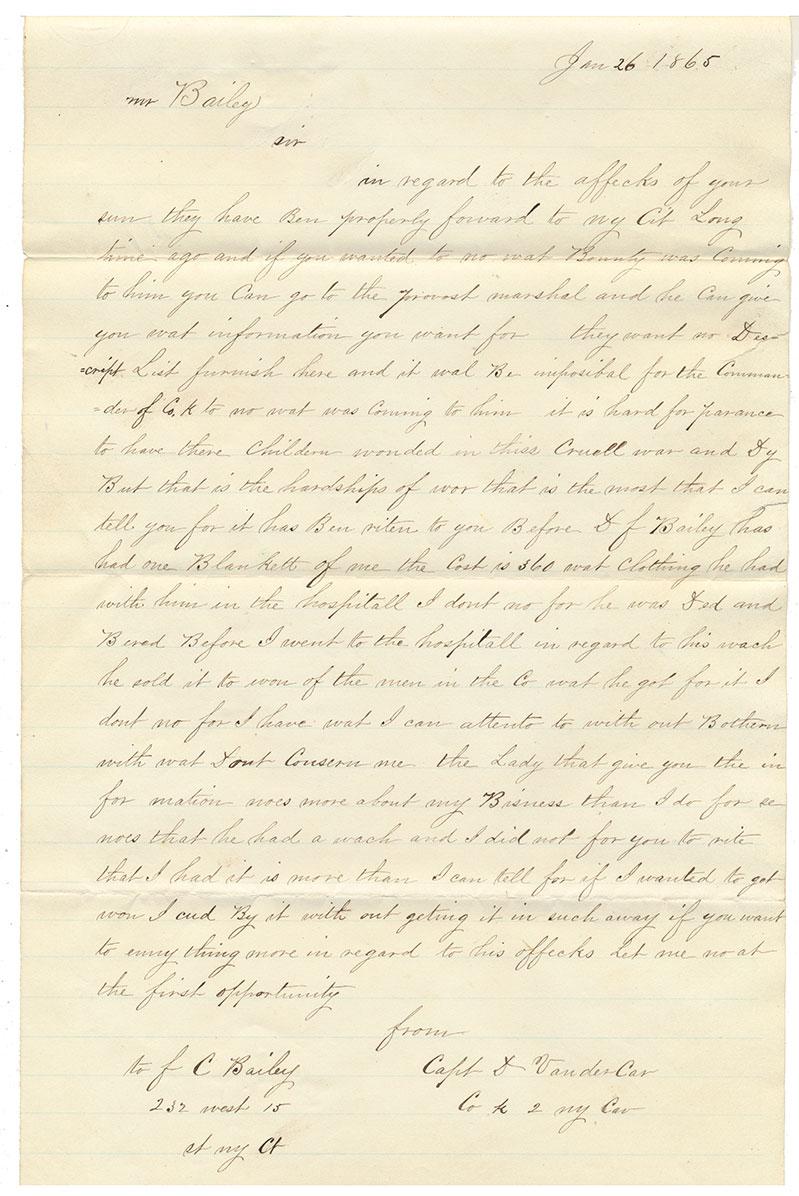 Jan 26 1865
mr Bailey
sir
in regard to the affecks of your
sun they have Ben properly forward to ny Cit Long
time ago and if you wanted to no wat Bounty was Coming
to him you Can go to the provost marshal and he Can give
you wat information you want for they want no Des=
=cript List furnish here and it wal Be imposibal for the Comman=
=der of Co. K to no wat was Coming to him it is hard for parance
to have there Childern wonded in thiss Cruell war and Dy
But that is the hardships of wor that is the most that I can
tell you for it has Ben riten to you Before D f Bailey has
had one Blankett of me the Cost is 360 wat Clothing he had
with him in the hospitall I dont no for he was Ded and
Bered Before I went to the hospitall in regard to his wach
he sold it to won of the men in the Co wat he got for it I
dont no for I have wat I can attento to with out Bothern
with wat Dont Consern me the Lady that give you the in
for mation noes more about my Bisness than I do for se
noes that he had a wach and I did not for you to rite
that I had it is more than I can tell for if I wanted to got
won I cud By it with out geting it in such away if you want
to enny thing more in regard to his offecks Let me no at
the first opportunity
from
to f C Bailey
Capt D VanderCar
232 west 15
Co k 2 ny Cav
st ny Ct